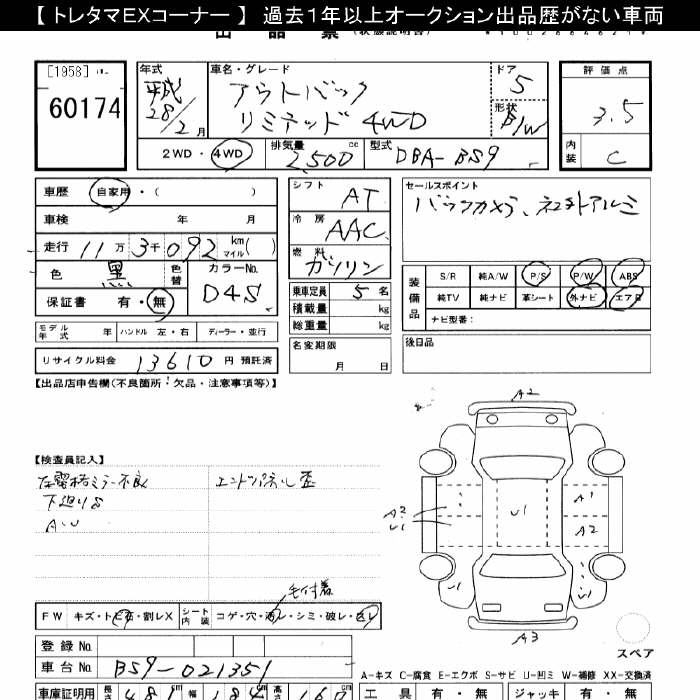 【 トレタマEXコーナー 】 過去１年以上オークション出品歴がない車両
[1958]
60174
年式
平成
28/2月
車名・グレード
アウトバック
リミテッド 4WD
ドア
5
形状
B/W
評価点
3.5
内装
C
2WD・4WD
排気量
2,500cc
型式
DBA-BS9
車歴
自家用・( )
車検 年 月
走行 11万3千092 km マイル( )
色 黒
色替
カラーNo.
D4S
保証書 有・無
モデル年式 年
ハンドル 左・右
ディーラー・並行
リサイクル料金 13610 円 預託済
シフト AT
冷房 AAC
燃料 ガソリン
乗車定員 5 名
積載量 kg
総重量 kg
名変期限
月 日
セールスポイント
バックカメラ、社外アルミ
装備品
S/R 純A/W P/S P/W ABS
純TV 純ナビ 革シート 外ナビ エアB
ナビ型番:
後日品
【出品店申告欄(不良箇所:欠品・注意事項等)】
【検査員記入】
左電格ミラー不良
下廻りS
AU
エンドパネル歪
毛付着
FW キズ・ト石・割レX
シート内装 コゲ・穴・汚レ・シミ・破レ・スレ
登録No.
車台No. BS9-021351
車庫証明用 長さ 481cm 幅 184cm 高さ 160cm
A2
A2
U1
U1
A1
A2
U1
U1
A3
スペア
A-キズ C-腐食 E-エクボ S-サビ U-凹ミ W-補修 XX-交換済
工具 有・無
ジャッキ 有・無